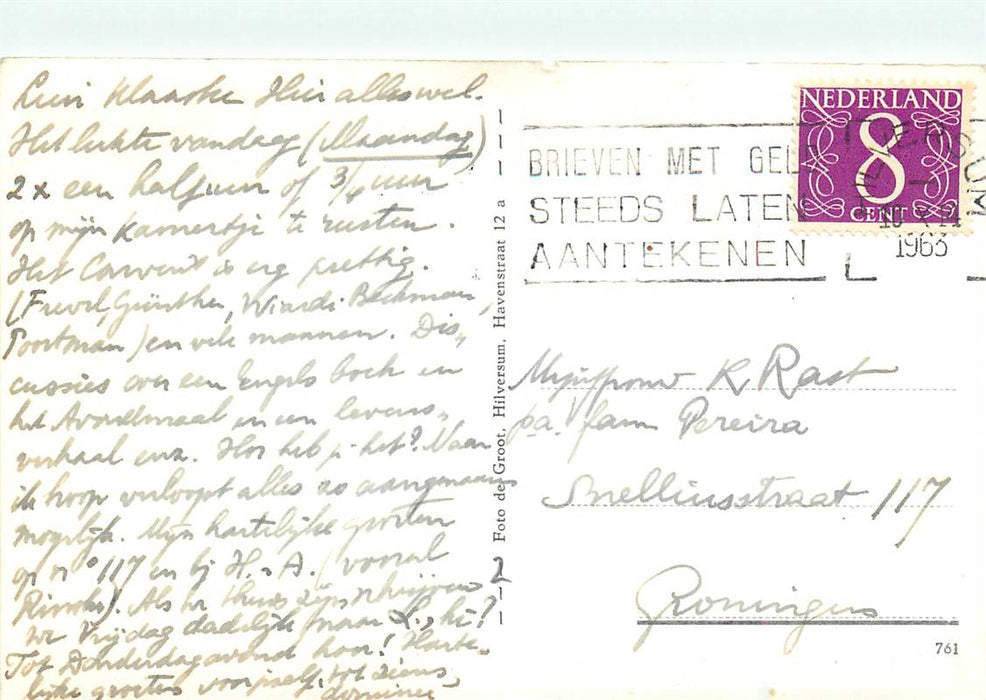 Lieve Klaaske Hier alles wel.
Het lukte vandaag (Maandag)
2 x een half uur of 3/4 uur
op mijn kamertje te rusten.
Het Convent is erg prettig.
Günther, Wiardi Beckman,
Poortman) en vele mannen. Dis-
cussies over een Engels boek en
het Avondmaal en een levens-
verhaal enz. Hoe heb je het? Naar
ik hoop verloopt alles zo aangenaam
mogelijk. Mijn hartelijke groeten
op no 117 en bij H. A. (vooral
Als we thuis zijn schrijven
we Vrijdag dadelijk naar L., hè?
Tot Donderdagavond hoor! Harte-
lijke groeten voor jezelf, tot ziens,
Foto de Groot, Hilversum, Havenstraat 12 a
NEDERLAND
8
CENT
BRIEVEN MET GELD
STEEDS LATEN
AANTEKENEN
HILVERSUM
1963
Mejuffrouw K Rast
p.a. fam Pereira
Snelliusstraat 117
Groningen
761